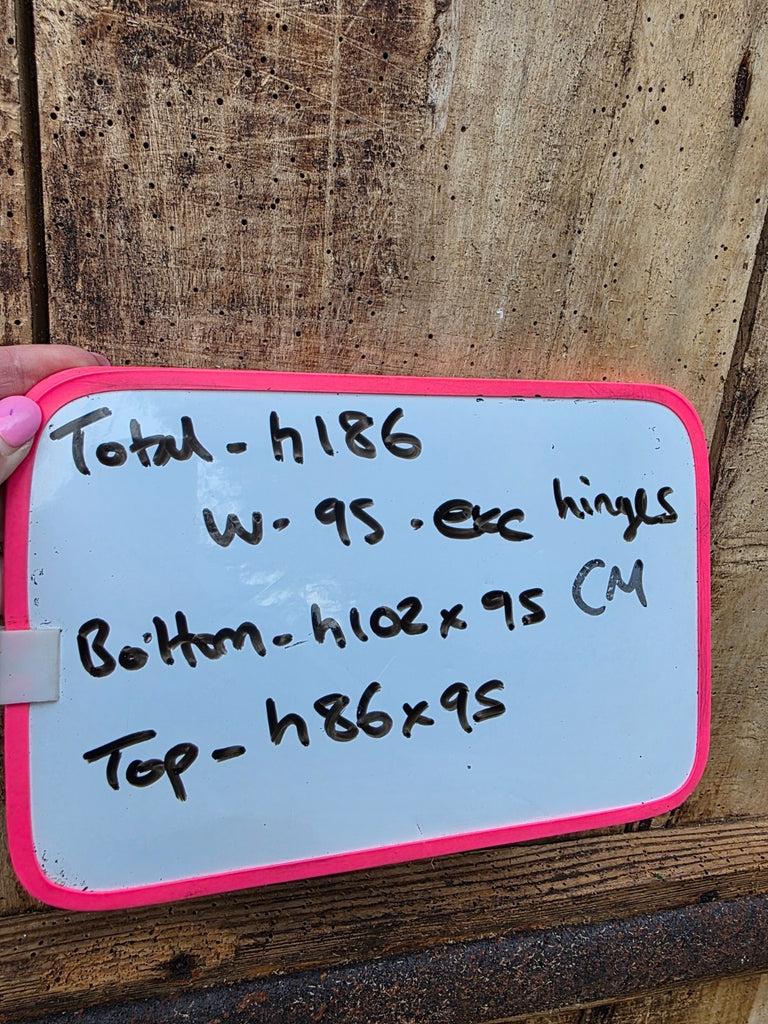 Total - h186
W - 95 . exc hinges
CM
Bottom - h102 x 95
Top - h86 x 95